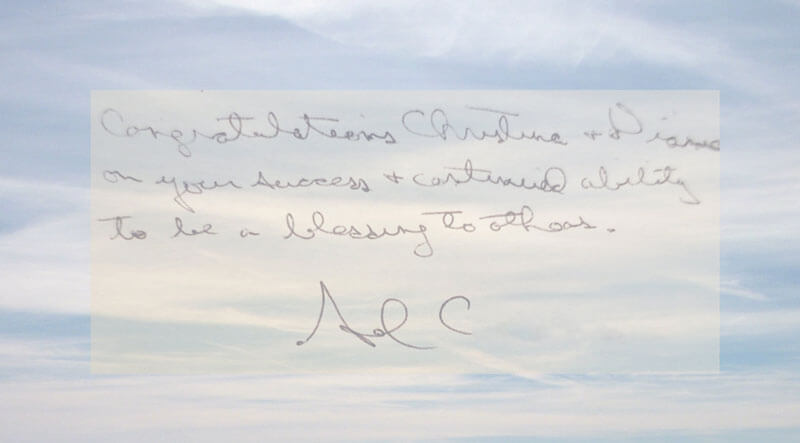 Congratulations Christina + Diane
on your success + continued ability
to be a blessing to others.
C